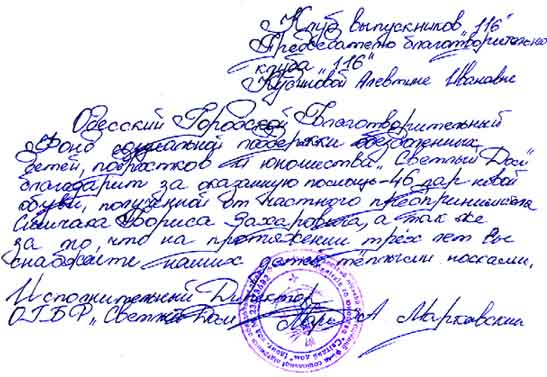 Клуб выпускников "116"
Председателю благотворительного
клуба "116"
Алевтине Ивановне
Одесский Городской Благотворительный
Фонд социальной поддержки обездоленных
детей, подростков и юношества "Светлый Дом"
благодарит за оказанную помощь - 46 пар новой
обуви, полученной от частного предпринимателя
Бориса Захаровича, а так же
за то, что на протяжении трёх лет Вы
снабжаете наших детей тёплыми носками.
Исполнительный Директор
"Светлый Дом" А. Марковский